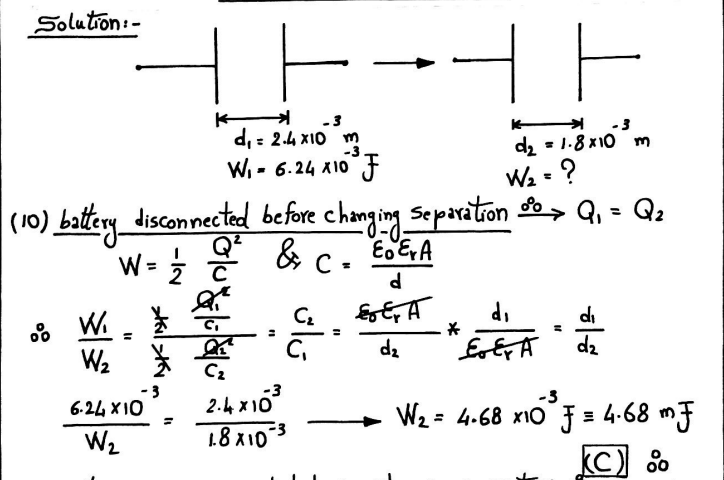 Solution:-
d₁ = 2.4 x10⁻³ m
W₁ = 6.24 x10⁻³ J
d₂ = 1.8 x10⁻³ m
W₂ = ?
(10) battery disconnected before changing separation ஃ→ Q₁ = Q₂
W = 1/2 Q²/C & C = ε₀εᵣA/d
∴ W₁/W₂ = (1/2 Q₁²/C₁)/(1/2 Q₂²/C₂) = C₂/C₁ = ε₀εᵣA/d₂ * d₁/ε₀εᵣA = d₁/d₂
6.24 x10⁻³/W₂ = 2.4 x10⁻³/1.8 x10⁻³ → W₂ = 4.68 x10⁻³ J ≡ 4.68 mJ
(C) ஃ